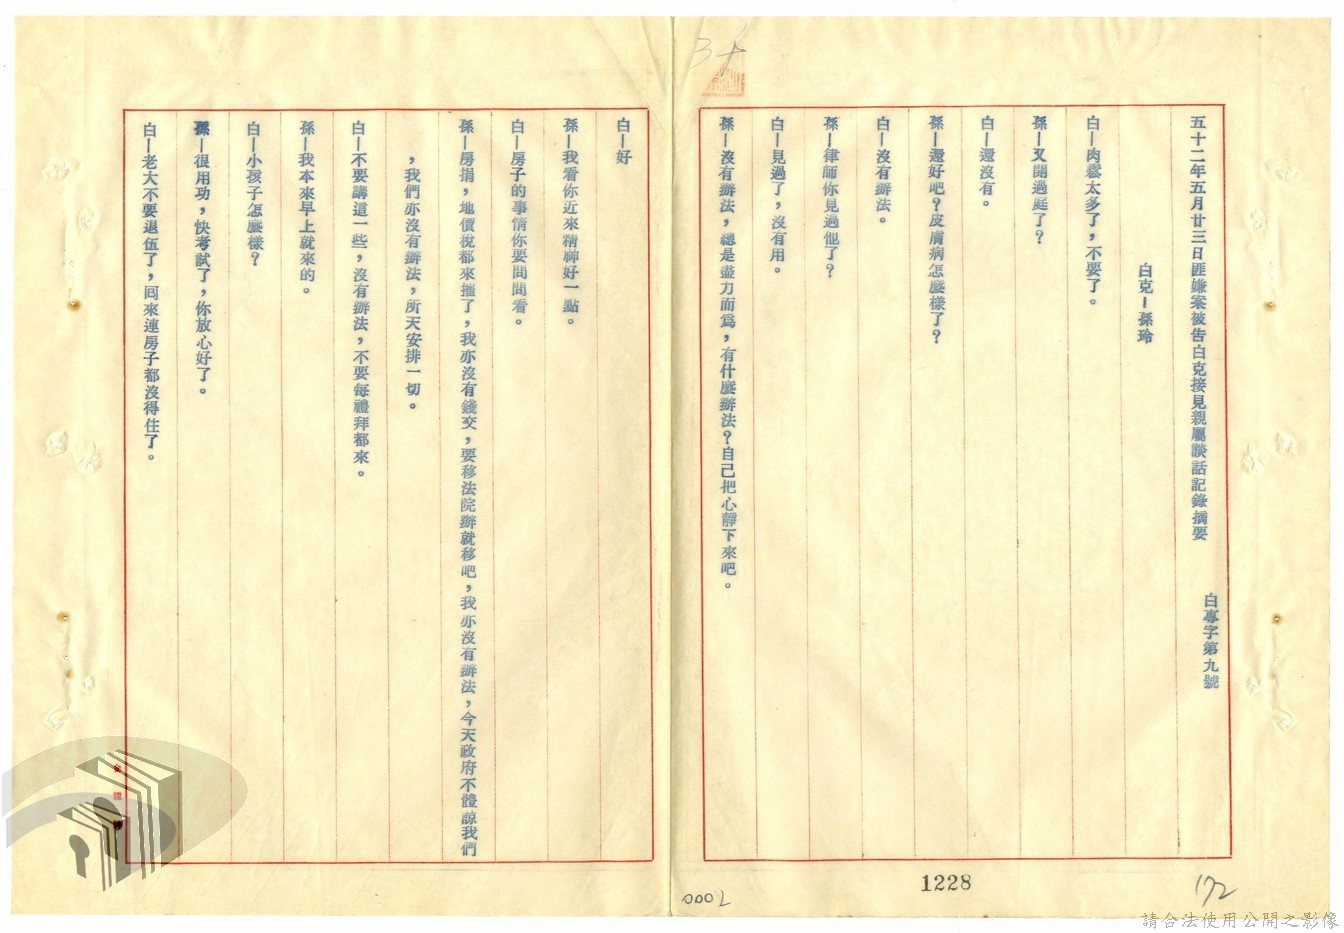 五十二年五月廿三日匪嫌案被告白克接見親屬談話記錄摘要
白專字第九號
白克—孫玲
白—肉鬆太多了，不要了。
孫—又開過庭了？
白—還沒有。
孫—還好吧？皮膚病怎麼樣了？
白—沒有辦法。
孫—律師你見過他了？
白—見過了，沒有用。
孫—沒有辦法，總是盡力而為，有什麼辦法？自己把心靜下來吧。
白—好
孫—我看你近來精神好一點。
白—房子的事情你要問問看。
孫—房捐，地價稅都來摧了，我亦沒有錢交，要移法院辦就移吧，我亦沒有辦法，今天政府不體諒我們
，我們亦沒有辦法，所天安排一切。
白—不要講這一些，沒有辦法，不要每禮拜都來。
孫—我本來早上就來的。
白—小孩子怎麼樣？
孫—很用功，快考試了，你放心好了。
白—老大不要退伍了，回來連房子都沒得住了。
1228
172
請合法使用公開之影像